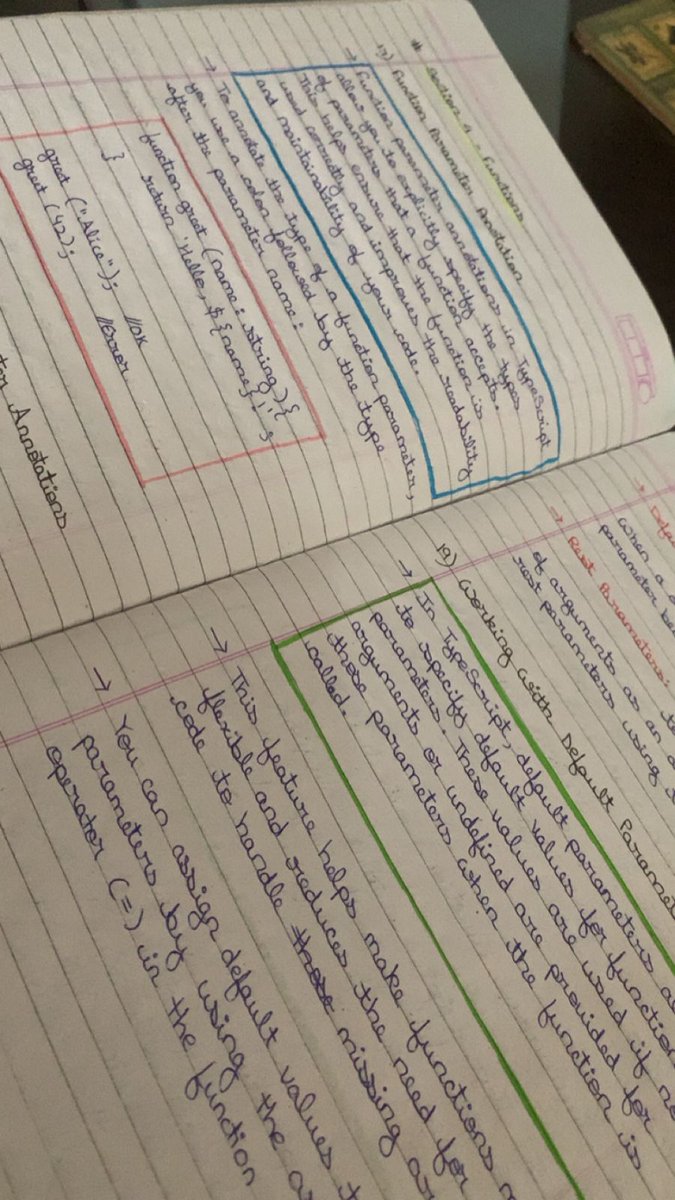 # Section 4 - Functions
17) Function Parameter Annotation
→ Function parameter annotations in TypeScript
allow you to explicitly specify the types
of parameters that a function accepts.
This helps ensure that the function is
used correctly and improves the readability
and maintainability of your code.
→ To annotate the type of a function parameter,
you use a colon followed by the type
after the parameter name:
function greet (name: string) {
return 'Hello, ${name}!';
}
greet ("Alice"); //OK
greet ('42); //Error
Annotations
→
When a
parameter
→ Rest Parameters:
of arguments as an
rest parameters using
19) Working With Default
→ In TypeScript, default parameters
to specify default values for function
parameters. These values are used if
arguments or undefined are provided for
those parameters when the function is
called.
→ This feature helps make functions
flexible and reduces the need for
code to handle those missing
→ You can assign default values
parameters by using the
operator (=) in the function